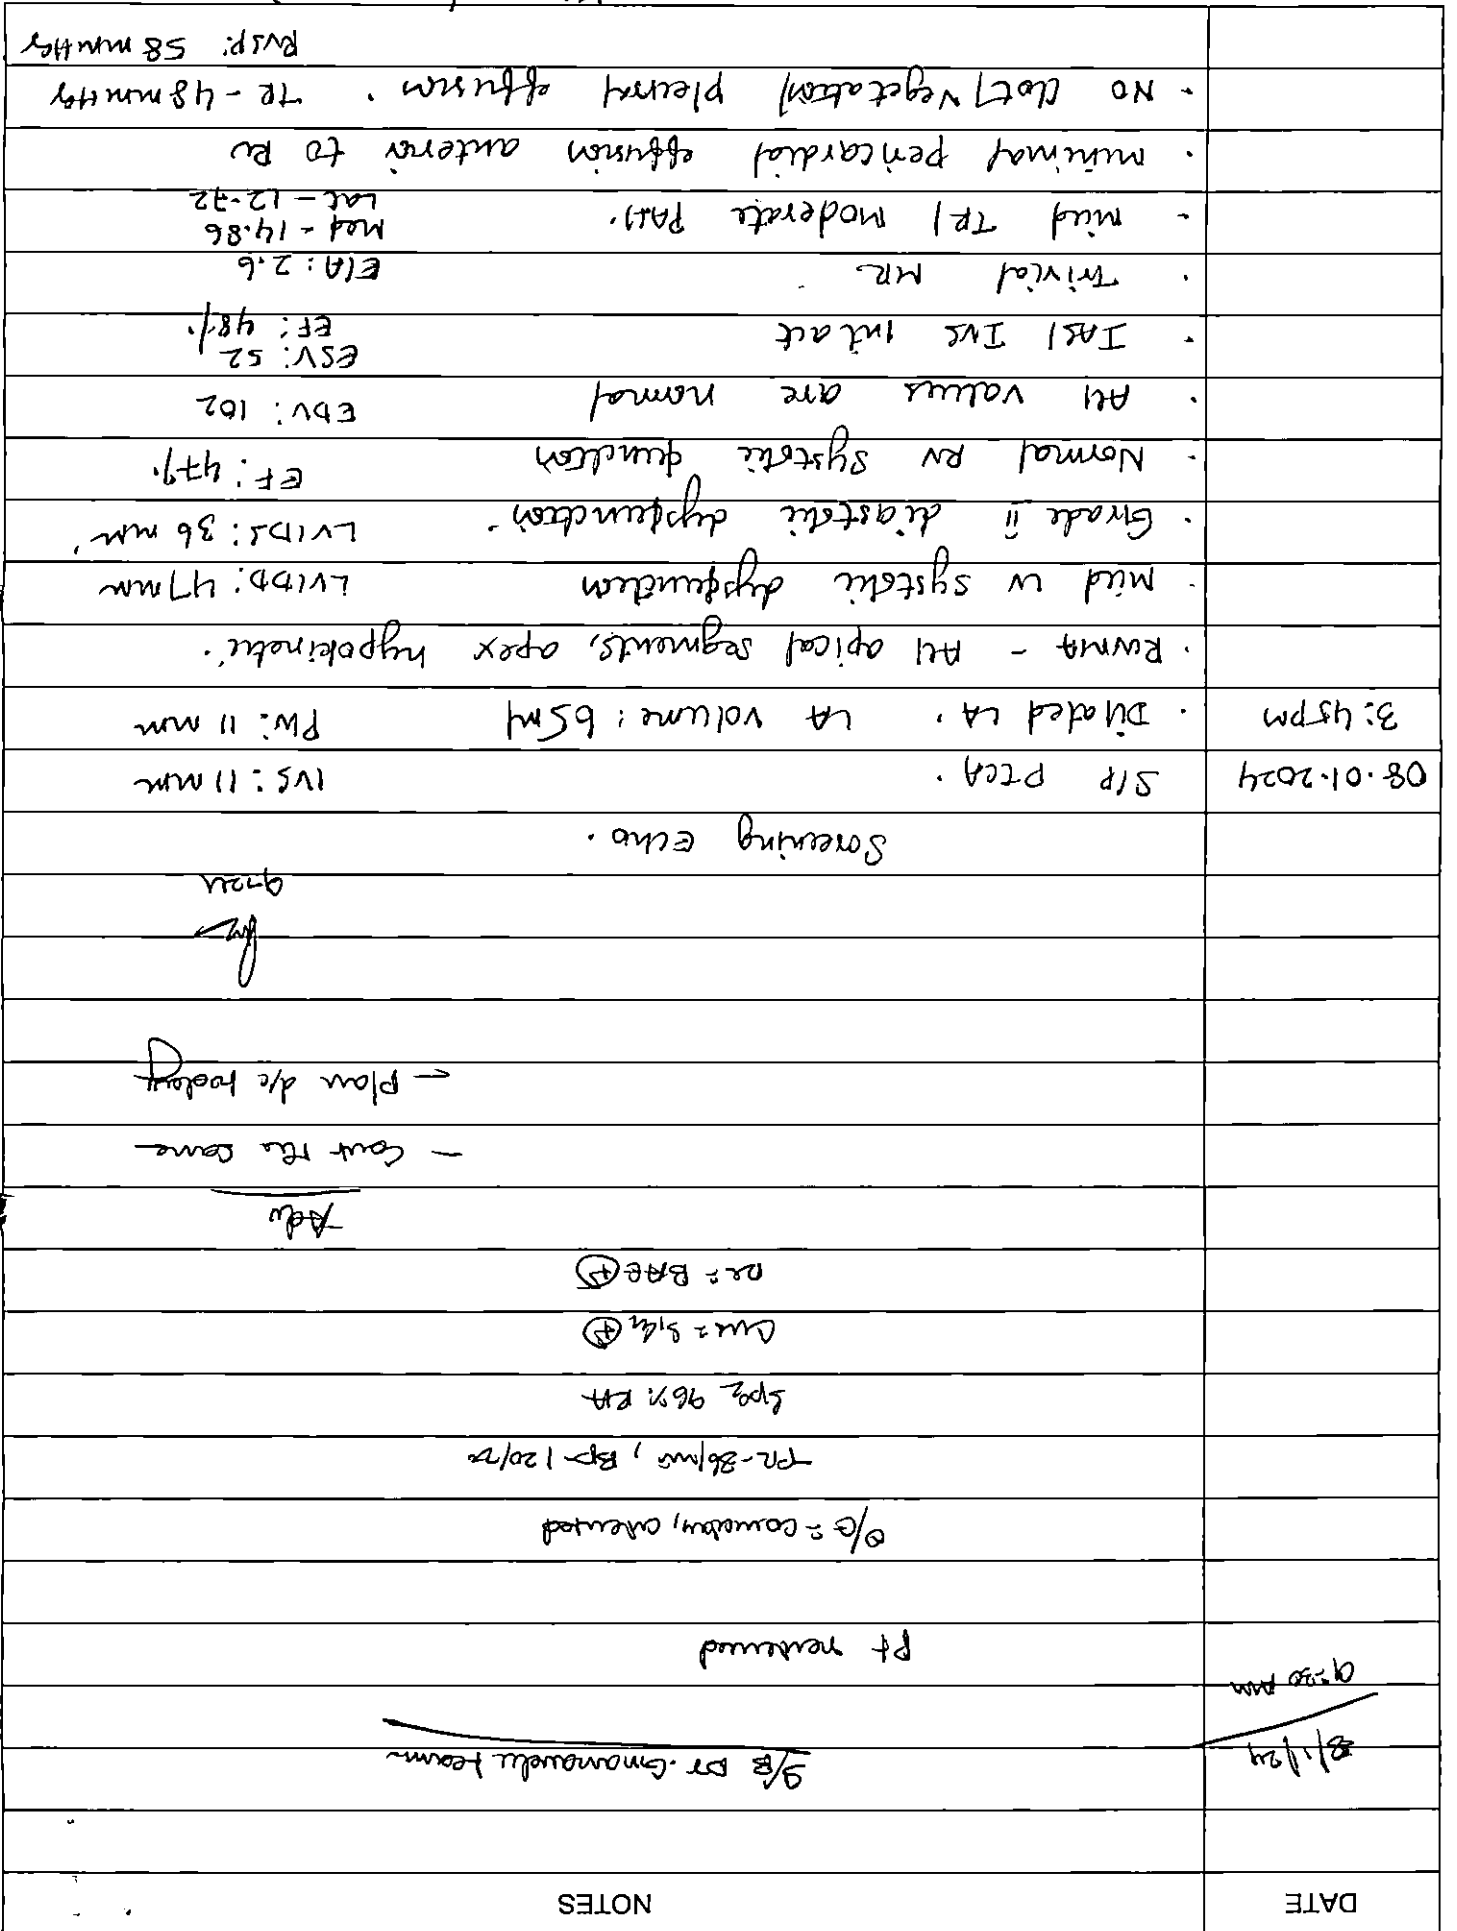 DATE NOTES
8/1/24 S/B Dr. Gnanavelu team
9:30 AM
Pt reviewed
O/E = conscious, oriented
PR-86/min, BP-120/70
SpO2 96% RA
CVS = S1S2 (+)
RS = BAE (+)
Adv
- Cont the same
- Plan d/c today
Screening Echo.
08.01.2024 S/P PTCA. IVS: 11 mm
3:45pm · Dilated LA. LA volume: 65ml PW: 11 mm
· RWMA - All apical segments, apex hypokinetic.
· Mild LV systolic dysfunction LVIDD: 47mm
· Grade ii diastolic dysfunction. LVIDS: 36 mm
· Normal RV systolic function EF: 47%
· All values are normal EDV: 102
· IAS/ IVS intact ESV: 52
EF: 48%
· Trivial MR E/A: 2.6
· mild TR/ moderate PAH. Med - 14.86
Lat - 12.72
· minimal pericardial effusion anterior to RV
· NO clot/ vegetation/ pleural effusion. TR - 48mmHg
RVSP: 58 mmHg